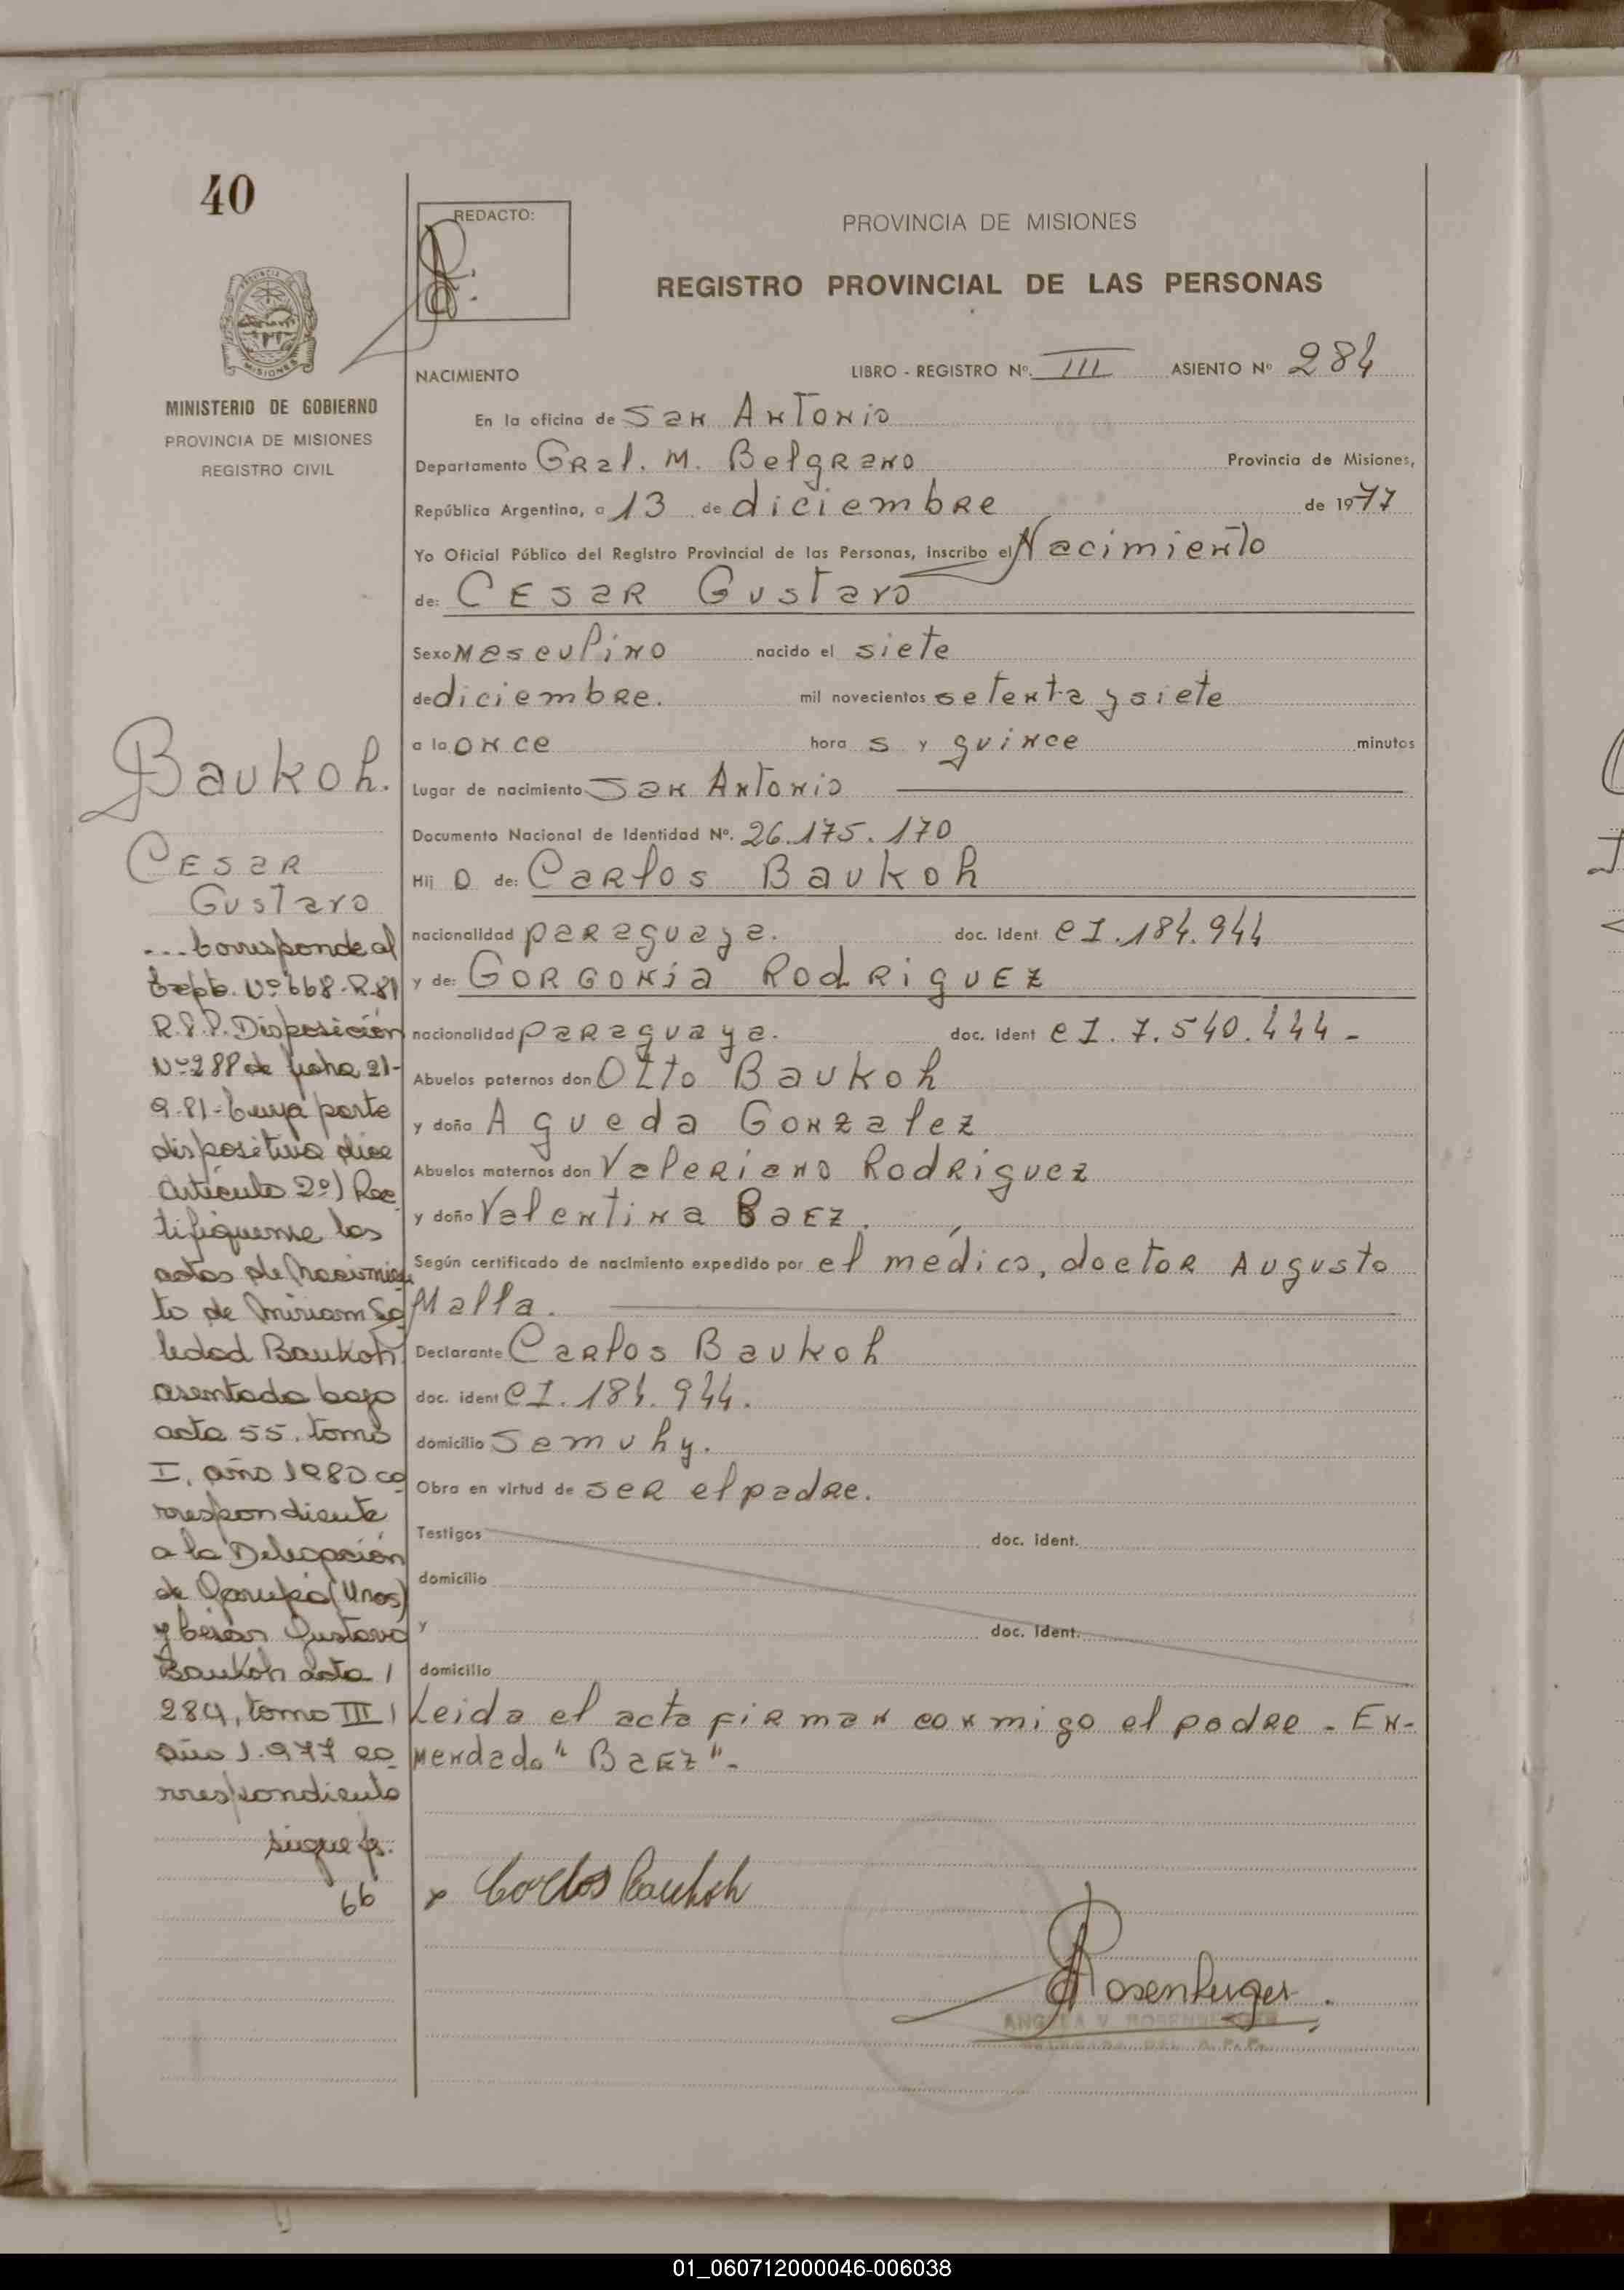 40
REDACTO:
PROVINCIA DE MISIONES
REGISTRO PROVINCIAL DE LAS PERSONAS
PROVINCIA
MISIONES
MINISTERIO DE GOBIERNO
PROVINCIA DE MISIONES
REGISTRO CIVIL
NACIMIENTO LIBRO - REGISTRO Nº. III ASIENTO Nº 284
En la oficina de San Antonio
Departamento Gral. M. Belgrano Provincia de Misiones,
República Argentina, a 13 de diciembre de 1977
Yo Oficial Público del Registro Provincial de las Personas, inscribo el Nacimiento
de: Cesar Gustavo
Sexo Masculino nacido el siete
de diciembre. mil novecientos setenta y siete
a la once hora s y quince minutos
Lugar de nacimiento San Antonio
Documento Nacional de Identidad Nº. 26.175.170
Hij o de: Carlos Baukoh
nacionalidad paraguaya. doc. ident CI.184.944
y de: Gorgonia Rodriguez
nacionalidad paraguaya. doc. ident CI. 7.540.444 -
Abuelos paternos don Otto Baukoh
y doña Agueda Gonzalez
Abuelos maternos don Valeriano Rodriguez
y doña Valentina Baez.
Según certificado de nacimiento expedido por el médico, doctor Augusto
Malla.
Declarante Carlos Baukoh
doc. ident CI.184.944.
domicilio Semuhy.
Obra en virtud de ser el padre.
Testigos doc. ident.
domicilio
y doc. ident.
domicilio
Leida el acta firman conmigo el padre - En-
mendado "Baez" -
Carlos Baukoh
Rosenberger
ANGELA V. ROSENBERGER
Baukoh.
Cesar
Gustavo
... Corresponde al
Expte. Nº 668-R-81
R.P.P. Disposición
Nº 288 de fecha 21-
9-81 - Cuya parte
dispositiva dice
Artículo 2º) Rec
tifiquense las
actas de Nacimien
to de Miriam So
ledad Baukoh
asentada bajo
acta 55. tomo
I, año 1980 co
rrespondiente
a la Delegación
de Garupá (Mnes)
y César Gustavo
Baukoh acta
284, tomo III
año 1.977 co
rrespondiente
sigue fs.
66
01_060712000046-006038